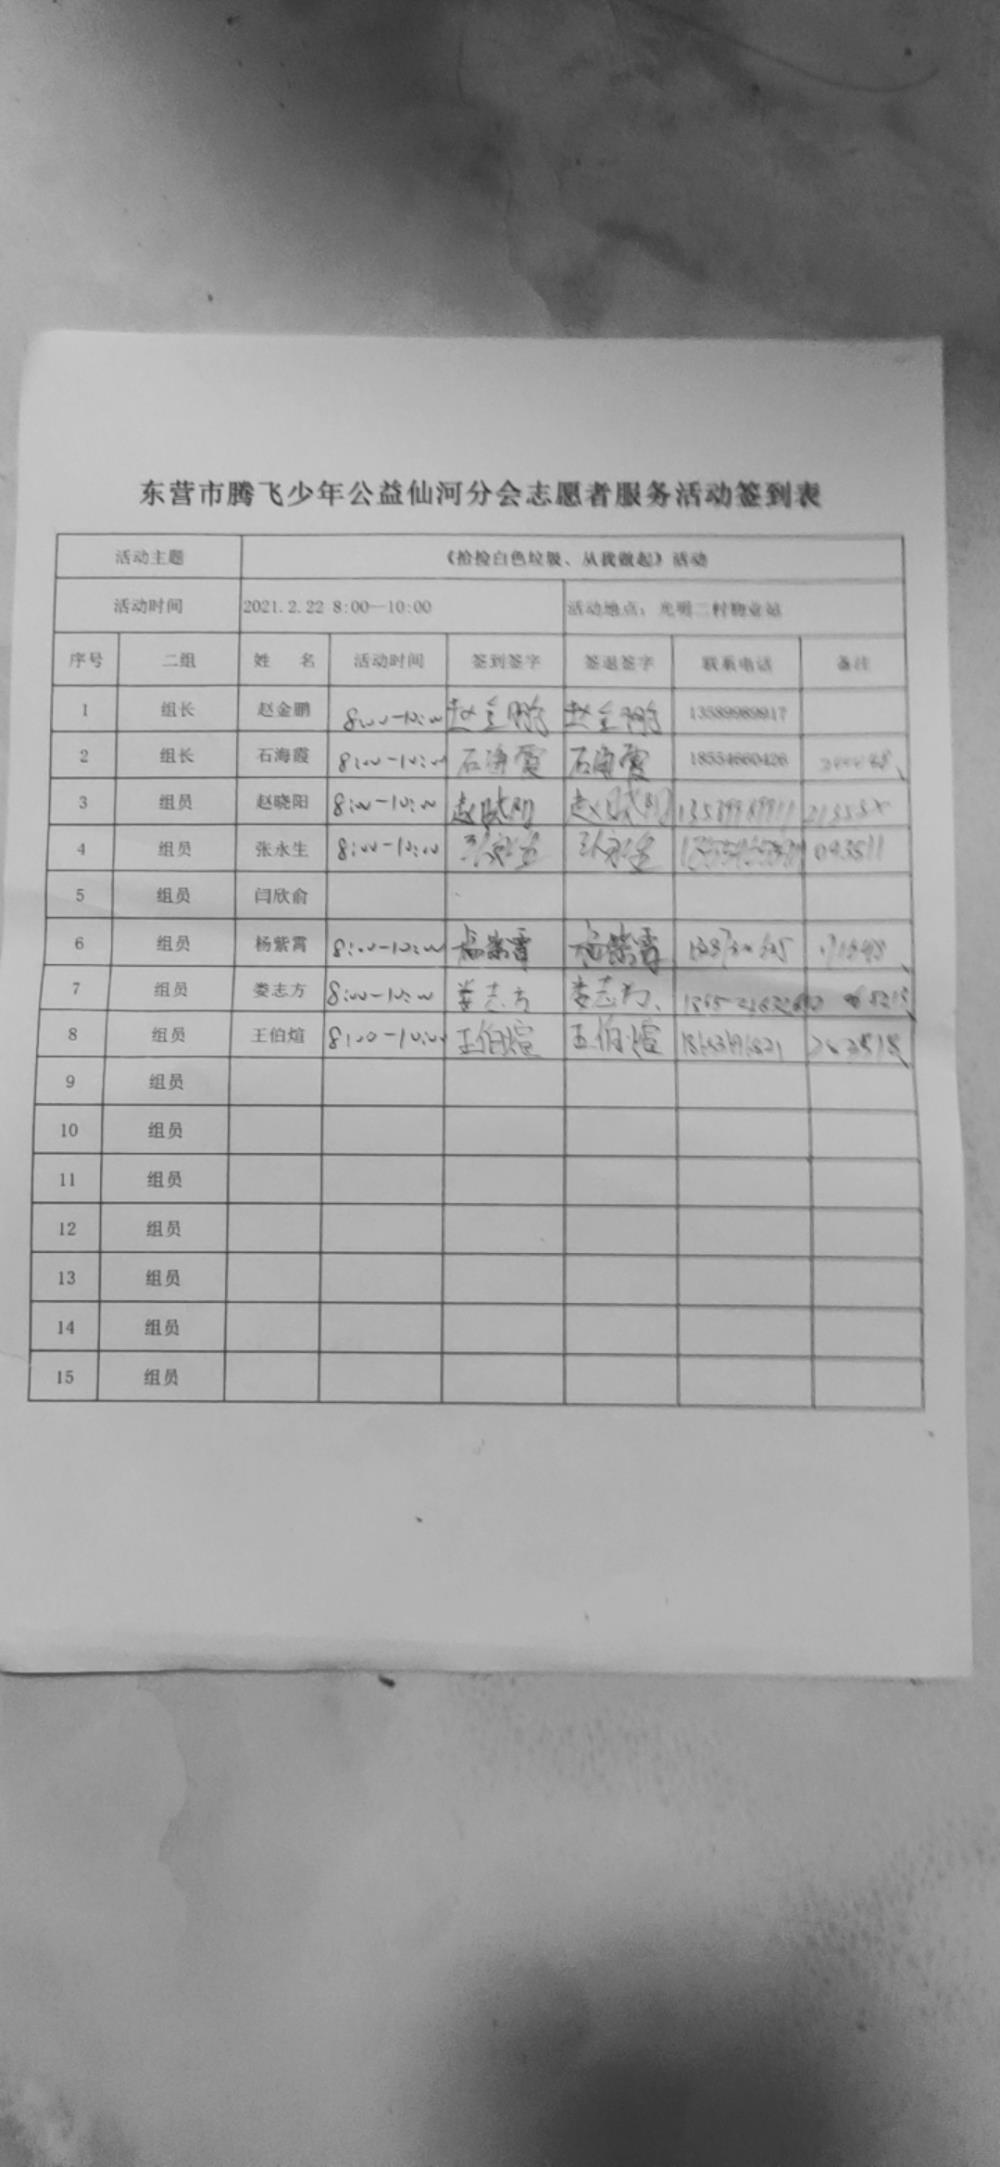 东营市腾飞少年公益仙河分会志愿者服务活动签到表
活动主题 《拾捡白色垃圾、从我做起》活动
活动时间 2021.2.22 8:00—10:00 活动地点：光明二村物业站
序号 二组 姓 名 活动时间 签到签字 签退签字 联系电话 备注
1 组长 赵金鹏 8:00-10:00 赵金鹏 赵金鹏 13589989917
2 组长 石海霞 8:00-10:00 石海霞 石海霞 18554660426
3 组员 赵晓阳 8:00-10:00 赵晓阳 赵晓阳
4 组员 张永生 8:00-10:00 张永生 张永生
5 组员 闫欣俞
6 组员 杨紫霄 8:00-10:00 杨紫霄 杨紫霄
7 组员 娄志方 8:00-10:00 娄志方 娄志方
8 组员 王伯煊 8:00-10:00 王伯煊 王伯煊
9 组员
10 组员
11 组员
12 组员
13 组员
14 组员
15 组员